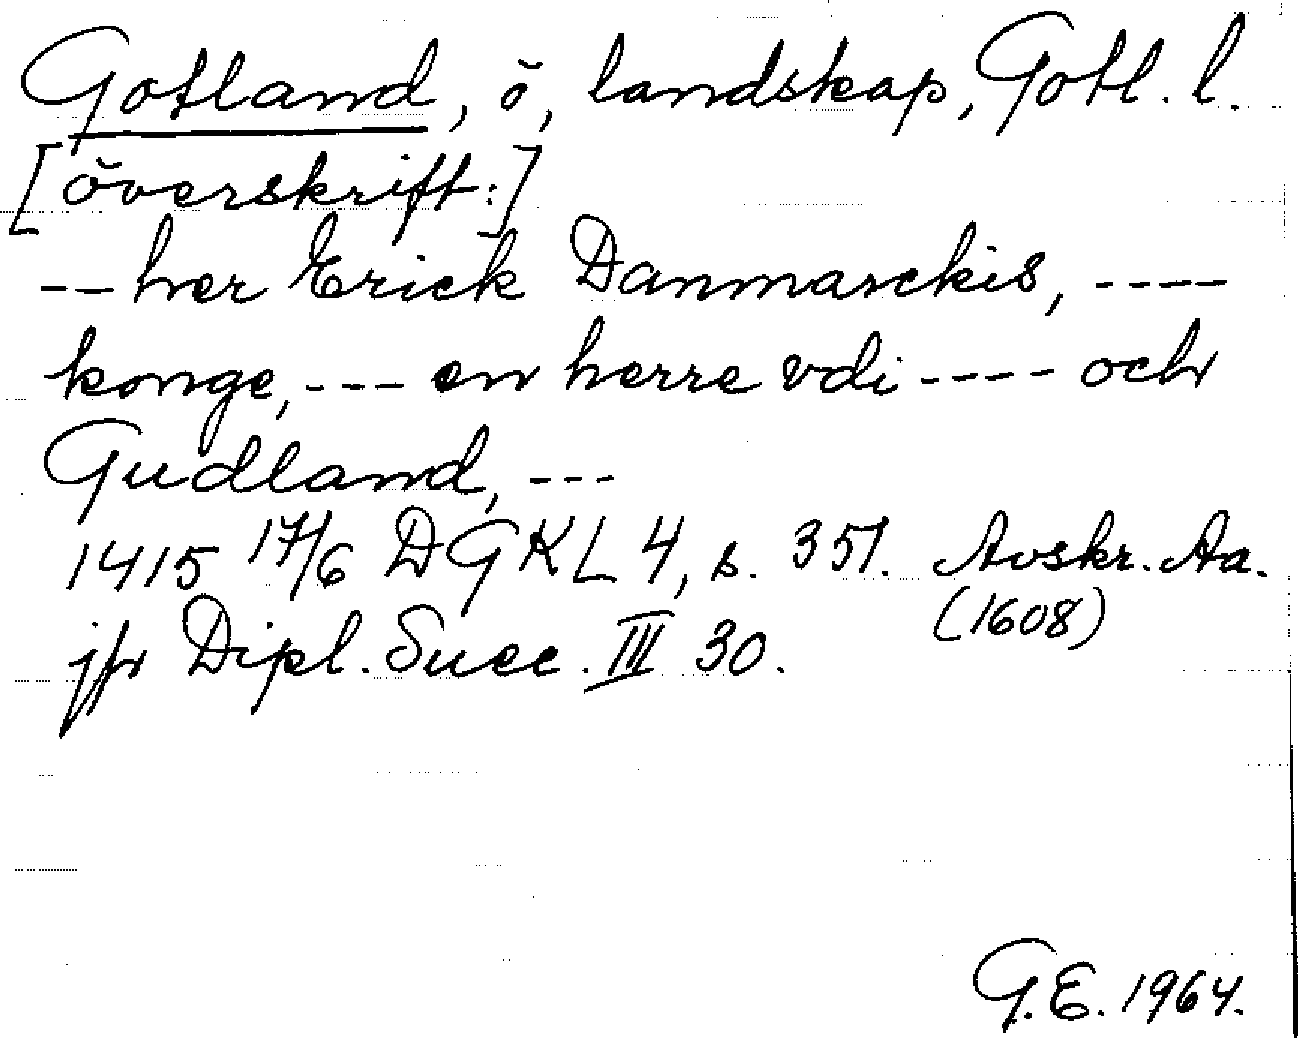 Gotland, ö, landskap, Gotl. l.
[överskrift:]
-- her Erick Danmarckis, ----
konge, --- en herre vdi ---- och
Gudland, ---
1415 17/6 DGKL 4, s. 351. Avskr. Aa.
(1608)
jfr Dipl. Suec. III 30.
G.E. 1964.